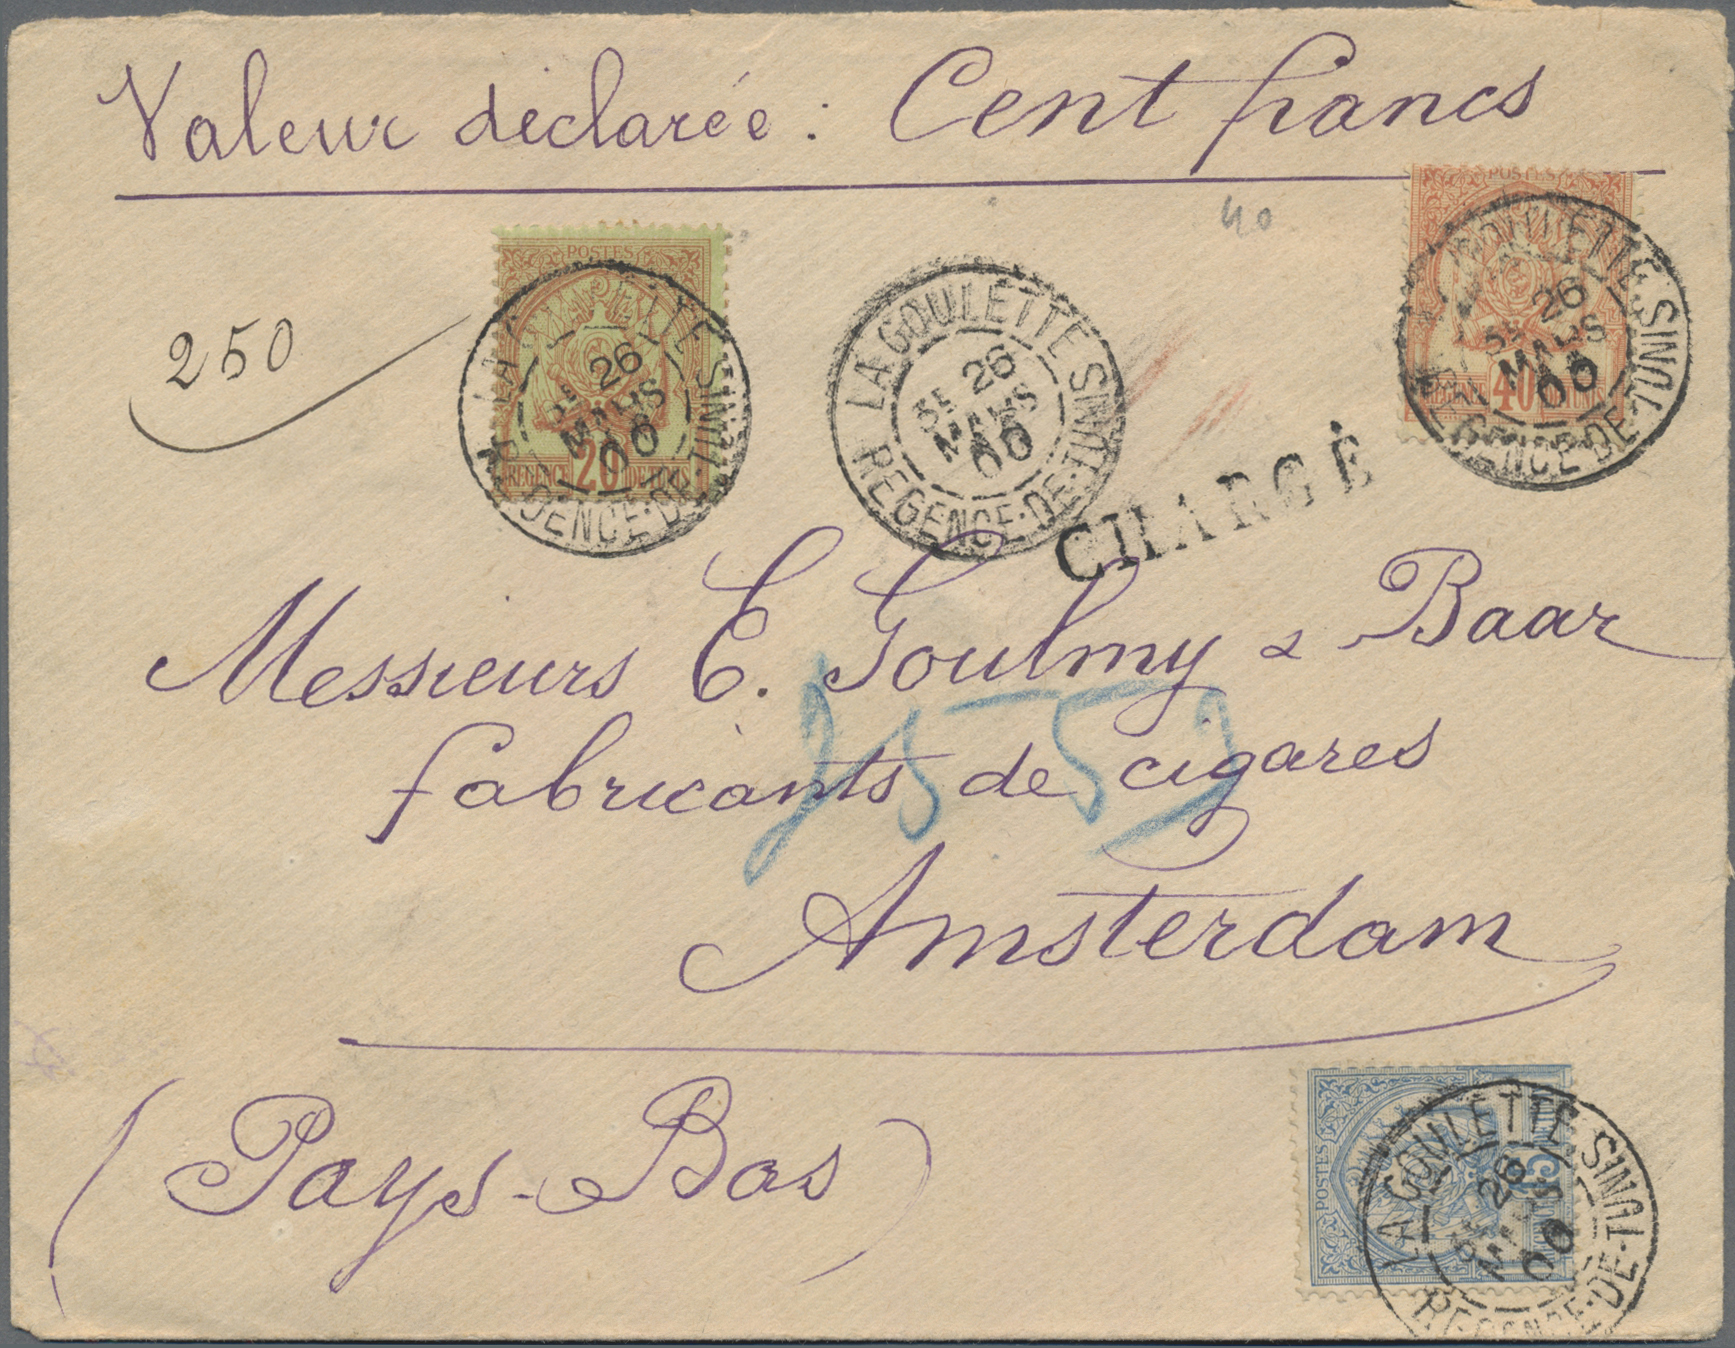 Valeur déclarée : Cent francs
40
250
POSTES
REGENCE 20 DE TUNIS
LA GOULETTE TUNIS
REGENCE·DE·TUNIS
3E 26
MARS
00
LA GOULETTE TUNIS
REGENCE·DE·TUNIS
3E 26
MARS
00
POSTES
REGENCE 40 DE TUNIS
LA GOULETTE TUNIS
REGENCE·DE·TUNIS
3E 26
MARS
00
CHARGÉ
Messieurs E. Goulmy & Baar
fabricants de cigares
Amsterdam
(Pays-Bas)
POSTES
LA GOULETTE TUNIS
REGENCE·DE·TUNIS
26
MARS
00